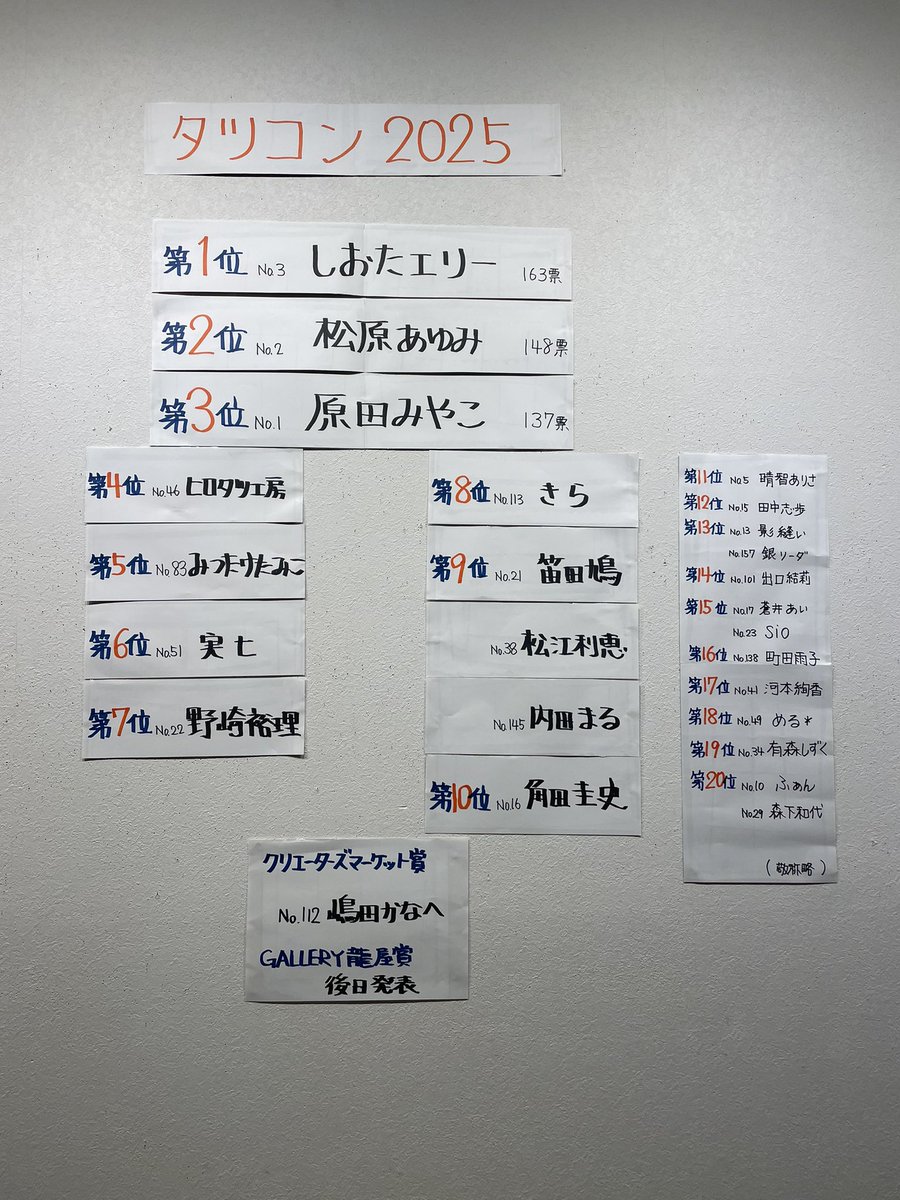 タツコン 2025
第1位 No.3 しおたエリー 163票
第2位 No.2 松原あゆみ 148票
第3位 No.1 原田みやこ 137票
第4位 No.46 ヒロタツ工房
第5位 No.83 みつたけたみこ
第6位 No.51 実七
第7位 No.22 野崎裕理
第8位 No.113 きら
第9位 No.21 笛田鳩
No.38 松江利恵
No.145 内田まる
第10位 No.16 角田圭史
第11位 No.5 晴智ありさ
第12位 No.15 田中志歩
第13位 No.13 影縫い
No.157 銀リーダ
第14位 No.101 出口結莉
第15位 No.17 蒼井あい
No.23 Sio
第16位 No.138 町田雨子
第17位 No.41 河本絢香
第18位 No.49 める*
第19位 No.34 有森しずく
第20位 No.10 ふぁん
No.29 森下和代
(敬称略)
クリエーターズマーケット賞
No.112 嶋田かなへ
GALLERY龍屋賞
後日発表